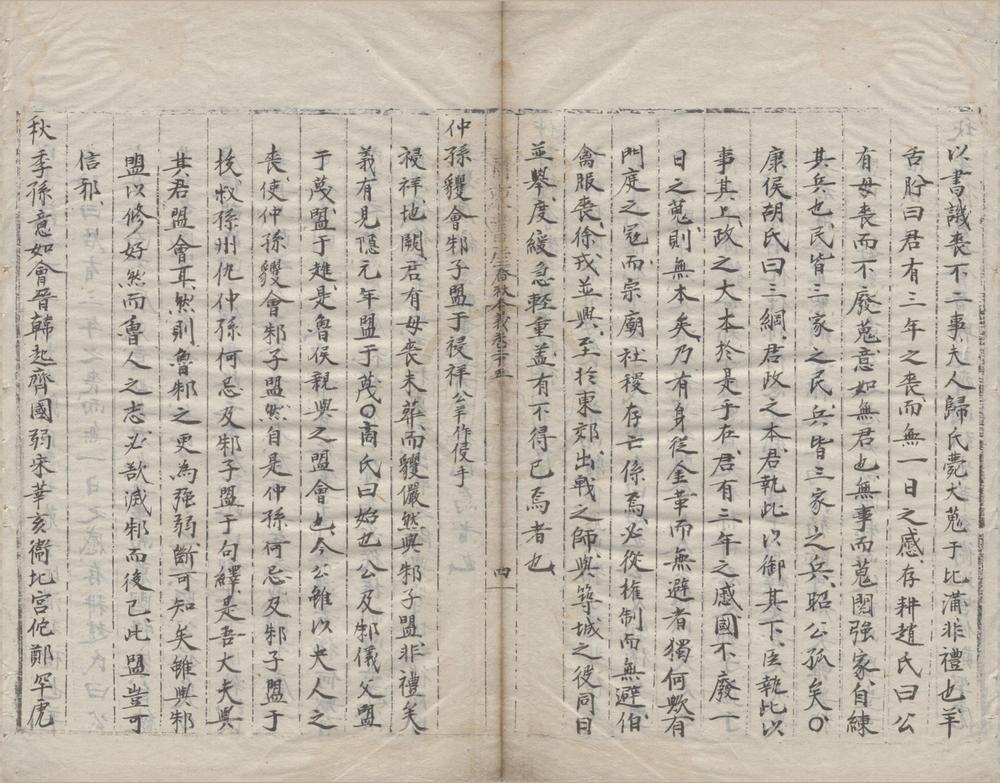 以書譏喪不二事夫人歸氏薨大蒐于比蒲非禮也羊
舌肸曰君有三年之喪而無一日之慼存耕趙氏曰公
有母喪而不廢蒐意如無君也無事而蒐閱強家自練
其兵也民皆三家之民兵皆三家之兵昭公孤矣〇
康侯胡氏曰三綱君政之本君執此以御其下臣執此以
事其上政之大本於是乎在君有三年之慼國不廢一
日之蒐則無本矣乃有身從金革而無避者獨何歟有
門庭之冦而宗廟社稷存亡係焉必從權制而無避伯
禽服喪徐戎並興至於東郊出戰之師與築城之役同日
並舉度緩急輕重盖有不得已焉者也
春秋 義卷二十五
四
仲孫貜會邾子盟于祲祥公羊作侵羊
祲祥地闕君有母喪未葬而貜儼然與邾子盟非禮矣
義有見隱元年盟于蔑〇高氏曰始也公及邾儀父盟
于蔑盟于趡是魯侯親與之盟會也今公雖以夫人之
喪使仲孫貜會邾子盟然自是仲孫何忌及邾子盟于
拔叔孫州仇仲孫何忌及邾子盟于句繹是吾大夫與
其君盟會耳然則魯邾之更為强弱斷可知矣雖與邾
盟以修好然而魯人之志必欲滅邾而後已此盟豈可
信邪
秋季孫意如會晉韓起齊國弱宋華亥衞北宮佗鄭罕虎